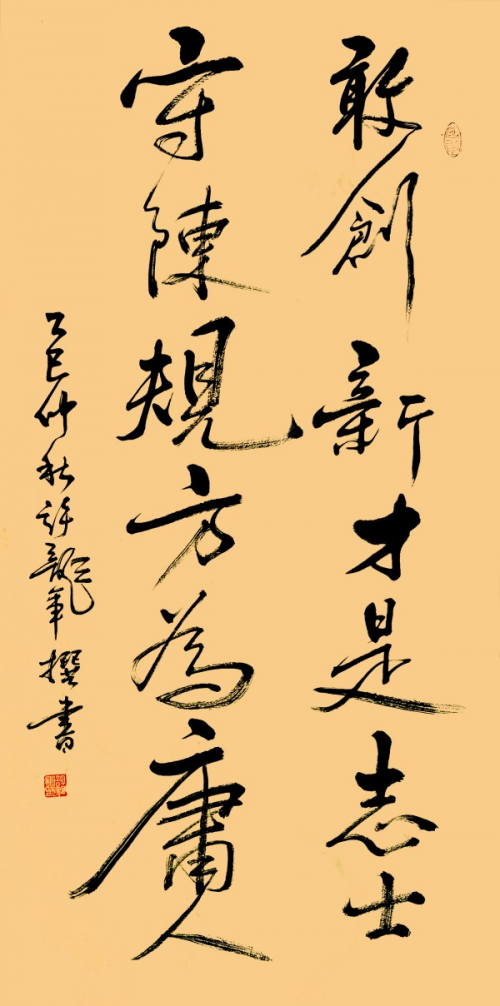 敢創新才是志士
守陳規方為庸人
乙巳仲秋許龍年撰書